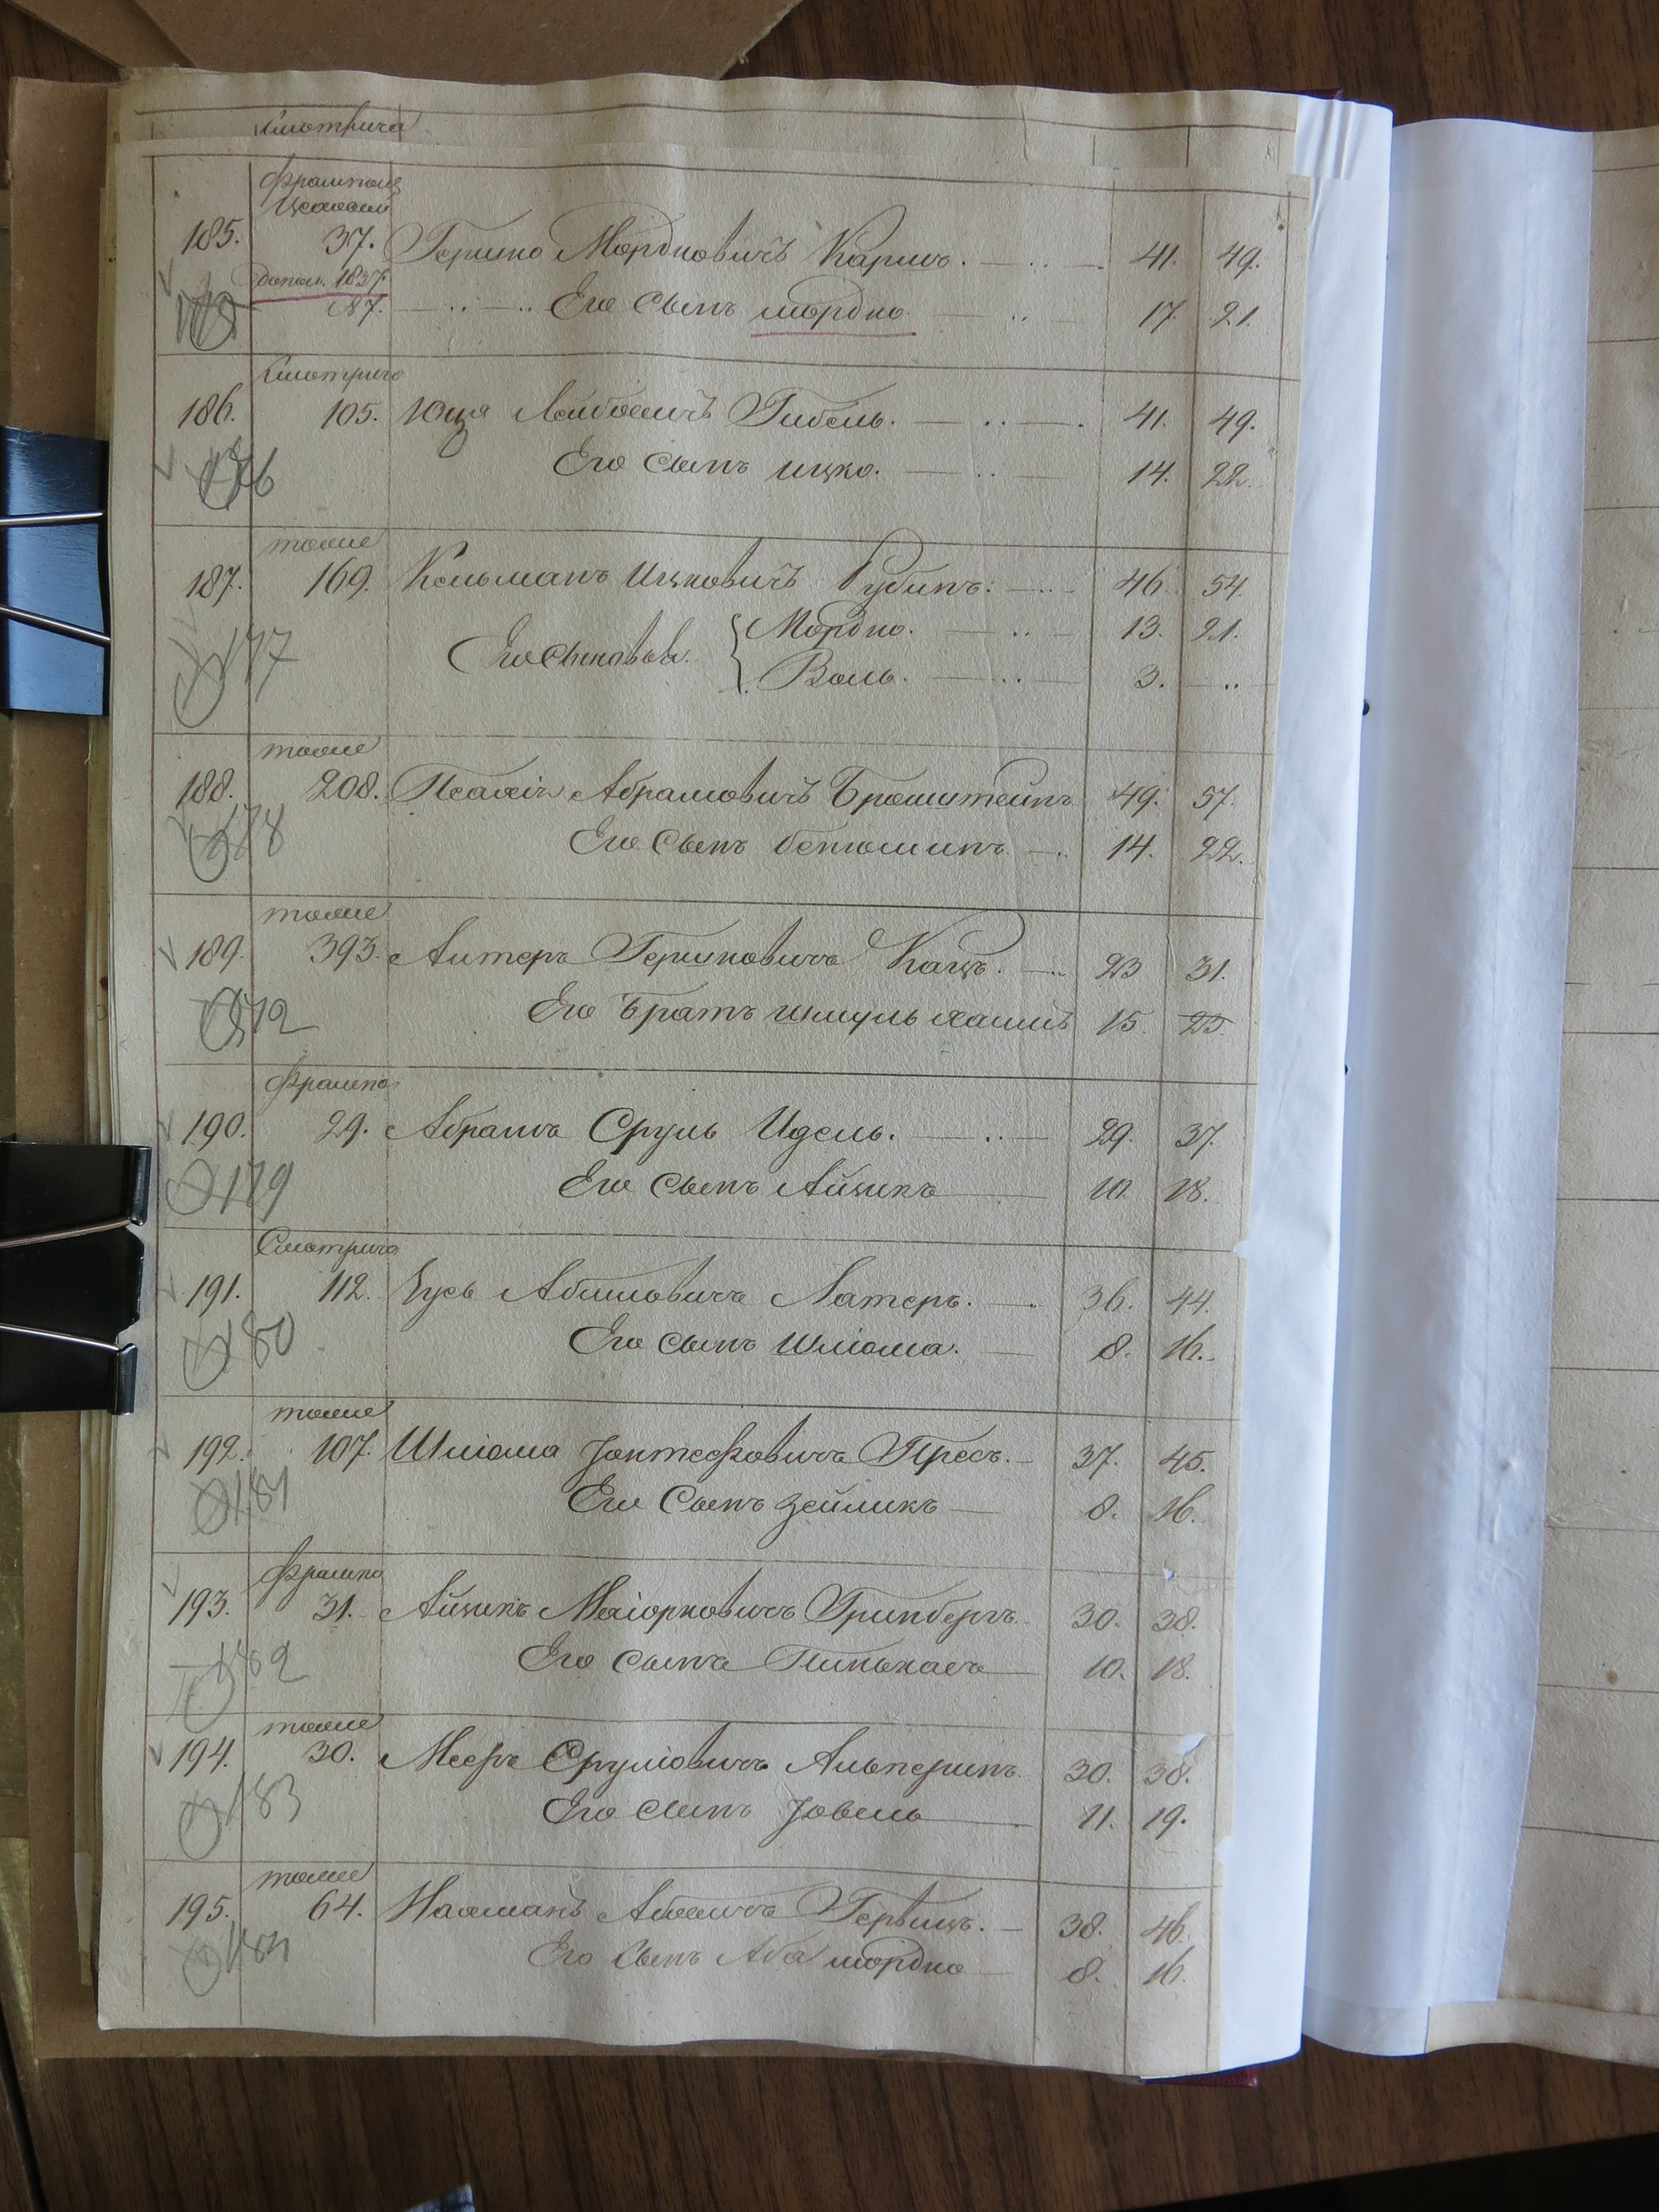 Смотрича
185. 37. Гершко Мордковичъ Каршъ. 41. 49.
допол. 1837.
87. Его Сынъ мордко 17. 21.
Смотрича
186. 105. Юця Лейбовичъ Гибель. 41. 49.
176
Его Сынъ ицко. 14. 22.
тоже
187. 169. Кельманъ Ицковичъ Рубинъ. 46. 54.
177
Его Сыновья { Мордко. 13. 21.
Воль. 3. ..
тоже
188. 208. Псахія Абрамовичъ Бромштейнъ 49. 57.
178
Его Сынъ бенюминъ 14. 22.
тоже
189. 393. Алтеръ Гершковичъ Кацъ. 23 31.
172
Его братъ шмуль хаимъ 15. 23.
190. 29. Абрамъ Сруль Идель. 29. 37.
179
Его Сынъ Айзикъ 10. 18.
Смотрича
191. 112. Абрамовичъ Латеръ. 36. 44.
180
Его Сынъ Шліома. 8. 16.
тоже
192. 107. Шліома Іонтефовичъ Пресъ. 37. 45.
181
Его Сынъ Зейликъ 8. 16.
193. 31. Айзикъ Меіорковичъ Гринбергъ 30. 38.
182
Его Сынъ Пинькасъ 10. 18.
тоже
194. 30. Мееръ Сруліовичъ Альперинъ 30. 38.
183
Его Сынъ Іовель 11. 19.
тоже
195. 64. Нахманъ Абовичъ Гервицъ. 38. 46.
184
Его Сынъ Аба мордко 8. 16.